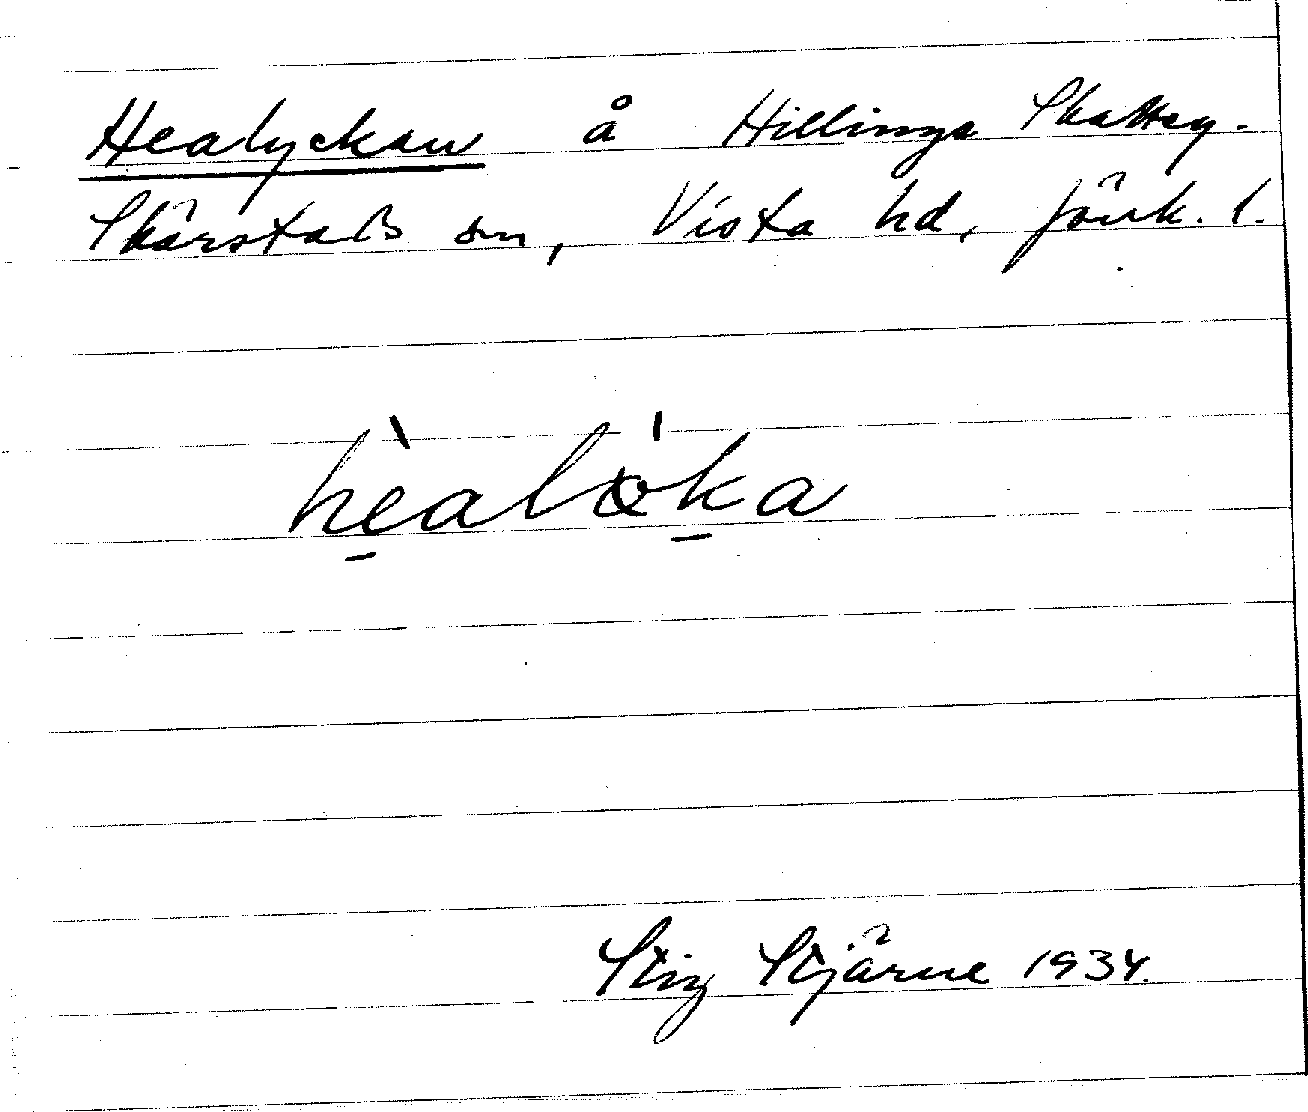 Healyckan å Hillinge Skatteg.
Skärstads sn, Vista hd, Jönk. l.
hèalö́ka
Stig Stjärne 1934.